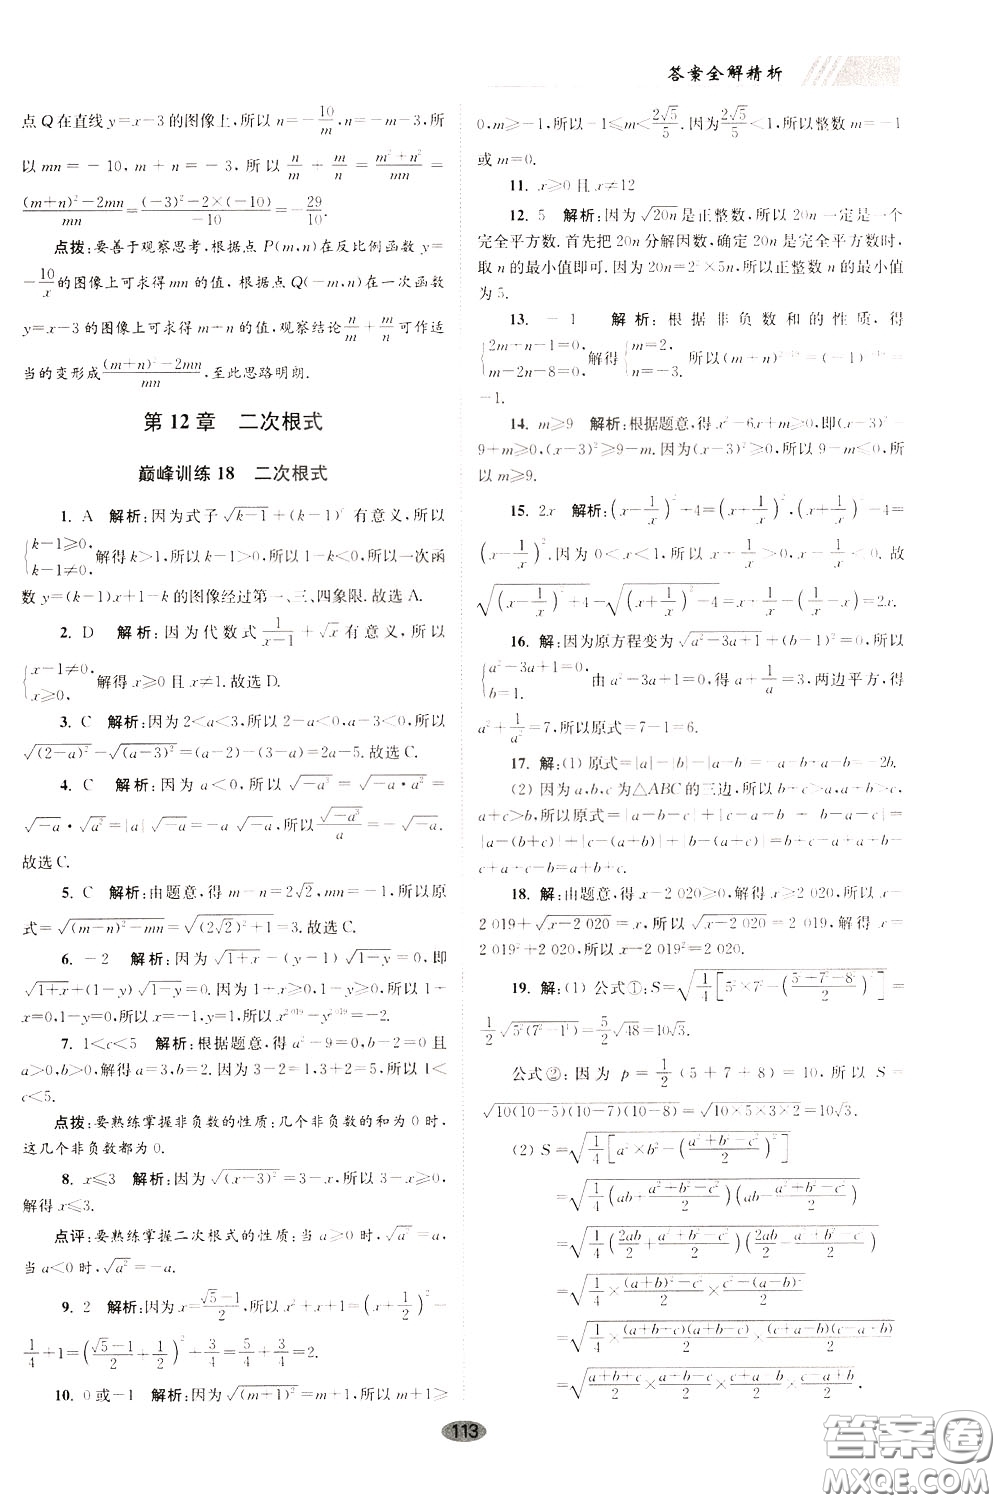 答案全解精析
点Q在直线y=x-3的图像上,所以n=-10/m,n=-m-3,所
以mn=-10,m+n=-3,所以n/m+m/n=(m²+n²)/mn=
((m+n)²-2mn)/mn=((-3)²-2×(-10))/-10=-29/10.
点拨:要善于观察思考,根据点P(m,n)在反比例函数y=
-10/x的图像上可求得mn的值,根据点Q(-m,n)在一次函数
y=x-3的图像上可求得m+n的值,观察结论n/m+m/n可作适
当的变形成((m+n)²-2mn)/mn,至此思路明朗.
第12章 二次根式
巅峰训练18 二次根式
1. A 解析:因为式子√(k-1)+(k-1)⁰有意义,所以
{k-1≥0, k-1≠0, 解得k>1,所以k-1>0,所以1-k<0,所以一次函
数y=(k-1)x+1-k的图像经过第一、三、四象限.故选A.
2. D 解析:因为代数式1/(x-1)+√x有意义,所以
{x-1≠0, x≥0, 解得x≥0且x≠1.故选D.
3. C 解析:因为2<a<3,所以2-a<0,a-3<0,所以
√(2-a)²-√(a-3)²=(a-2)-(3-a)=2a-5.故选C.
4. C 解析:因为a<0,所以√-a³=√(-a·a²)=
√-a·√a²=|a|√-a=-a√-a,所以√-a³/a=-√-a.
故选C.
5. C 解析:由题意,得m-n=2√2,mn=-1,所以原
式=√((m-n)²-mn)=√((2√2)²+1)=3.故选C.
6. -2 解析:因为√(1+x)-(y-1)√(1-y)=0,即
√(1+x)+(1-y)√(1-y)=0,所以1+x=0,1-y=0,所以1+
x=0,所以x=-1,y=1,所以x²⁰¹⁹-y²⁰¹⁹=-2.
7. 1<c<5 解析:根据题意,得a²-9=0,b-2=0且
a>0,b>0,解得a=3,b=2.因为3-2=1,3+2=5,所以1<
c<5.
点拨:要熟练掌握非负数的性质:几个非负数的和为0时,
这几个非负数都为0.
8. x≤3 解析:因为√(x-3)²=3-x,所以3-x≥0,
解得x≤3.
点评:要熟练掌握二次根式的性质:当a≥0时,√a²=a;
当a<0时,√a²=-a.
9. 2 解析:因为x=(√5-1)/2,所以x²+x+1=(x+1/2)²-
1/4+1=((√5-1)/2+1/2)²+3/4=5/4+3/4=2.
10. 0或-1 解析:因为√(m+1)²=m+1,所以m+1≥
0,m≥-1,所以-1≤m<2√5/5.因为2√5/5<1,所以整数m=-1
或m=0.
11. x≥0且x≠12
12. 5 解析:因为√20n是正整数,所以20n一定是一个
完全平方数.首先把20n分解因数,确定20n是完全平方数时,
取n的最小值即可.因为20n=2²×5n,所以正整数n的最小值
为5.
13. -1 解析:根据非负数和的性质,得
{2m+n-1=0, m-2n-8=0, 解得{m=2, n=-3, 所以(m+n)²⁰¹⁹=(-1)²⁰¹⁹=
-1.
14. m≥9 解析:根据题意,得x²-6x+m≥0,即(x-3)²-
9+m≥0,所以(x-3)²≥9-m.因为(x-3)²≥0,所以9-m≤0,所
以m≥9.
15. 2x 解析:(x-1/x)²+4=(x+1/x)²,(x+1/x)²-4=
(x-1/x)².因为0<x<1,所以x+1/x>0,x-1/x<0.故
√((x-1/x)²+4)-√((x+1/x)²-4)=x+1/x+x-1/x=2x.
16. 解:因为原方程变为√(a²-3a+1)+(b-1)²=0,所以
{a²-3a+1=0, b=1. 由a²-3a+1=0,得a+1/a=3,两边平方,得
a²+1/a²=7,所以原式=7-1=6.
17. 解:(1) 原式=|a|-|b|-|a-b|=-a-b+a-b=-2b.
(2) 因为a,b,c为△ABC的三边,所以b+c>a,a+b>c,
a+c>b,所以原式=|a-b-c|+|b-c-a|+|c-b-a|=
|a-(b+c)|+|b-(a+c)|+|c-(b+a)|=b+c-a+a+
c-b+a+b-c=a+b+c.
18. 解:由题意,得x-2 020≥0,解得x≥2 020,所以x-
2 019+√(x-2 020)=x,所以√(x-2 020)=2 019,解得x=
2 019²+2 020,所以x-2 019²=2 020.
19. 解:(1) 公式①:S=√(1/4[5²×7²-((5²+7²-8²)/2)²])=
1/2√(5²(7²-1²))=5/2√48=10√3.
公式②:因为p=1/2(5+7+8)=10,所以S=
√(10(10-5)(10-7)(10-8))=√(10×5×3×2)=10√3.
(2) S=√(1/4[a²×b²-((a²+b²-c²)/2)²])
=√(1/4(ab+(a²+b²-c²)/2)(ab-(a²+b²-c²)/2))
=√(1/4(2ab/2+(a²+b²-c²)/2)(2ab/2-(a²+b²-c²)/2))
=√(1/4×((a+b)²-c²)/2×(c²-(a-b)²)/2)
=√(1/4×(a+b+c)(a+b-c)/2×(c+a-b)(c-a+b)/2)
=√((a+b+c)/2×(a+b-c)/2×(c+a-b)/2×(c-a+b)/2).
113
答案圈
MXQE.COM